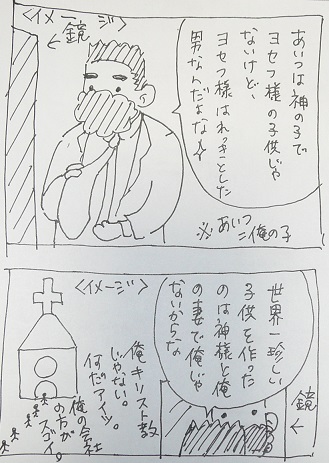 〈イメージ〉
鏡
←
あいつは神の子で
ヨセフ様の子供じゃ
ないけど、
ヨセフ様はれっきとした
男なんだよなぁ
※あいつ
=俺の子
〈イメージ〉
世界一珍しい
子供を作った
のは神様と俺
の妻で俺じゃ
ないからな
鏡
←
俺キリスト教
じゃない。
何だアイツ。
俺の会社
の方が
スゴイ。